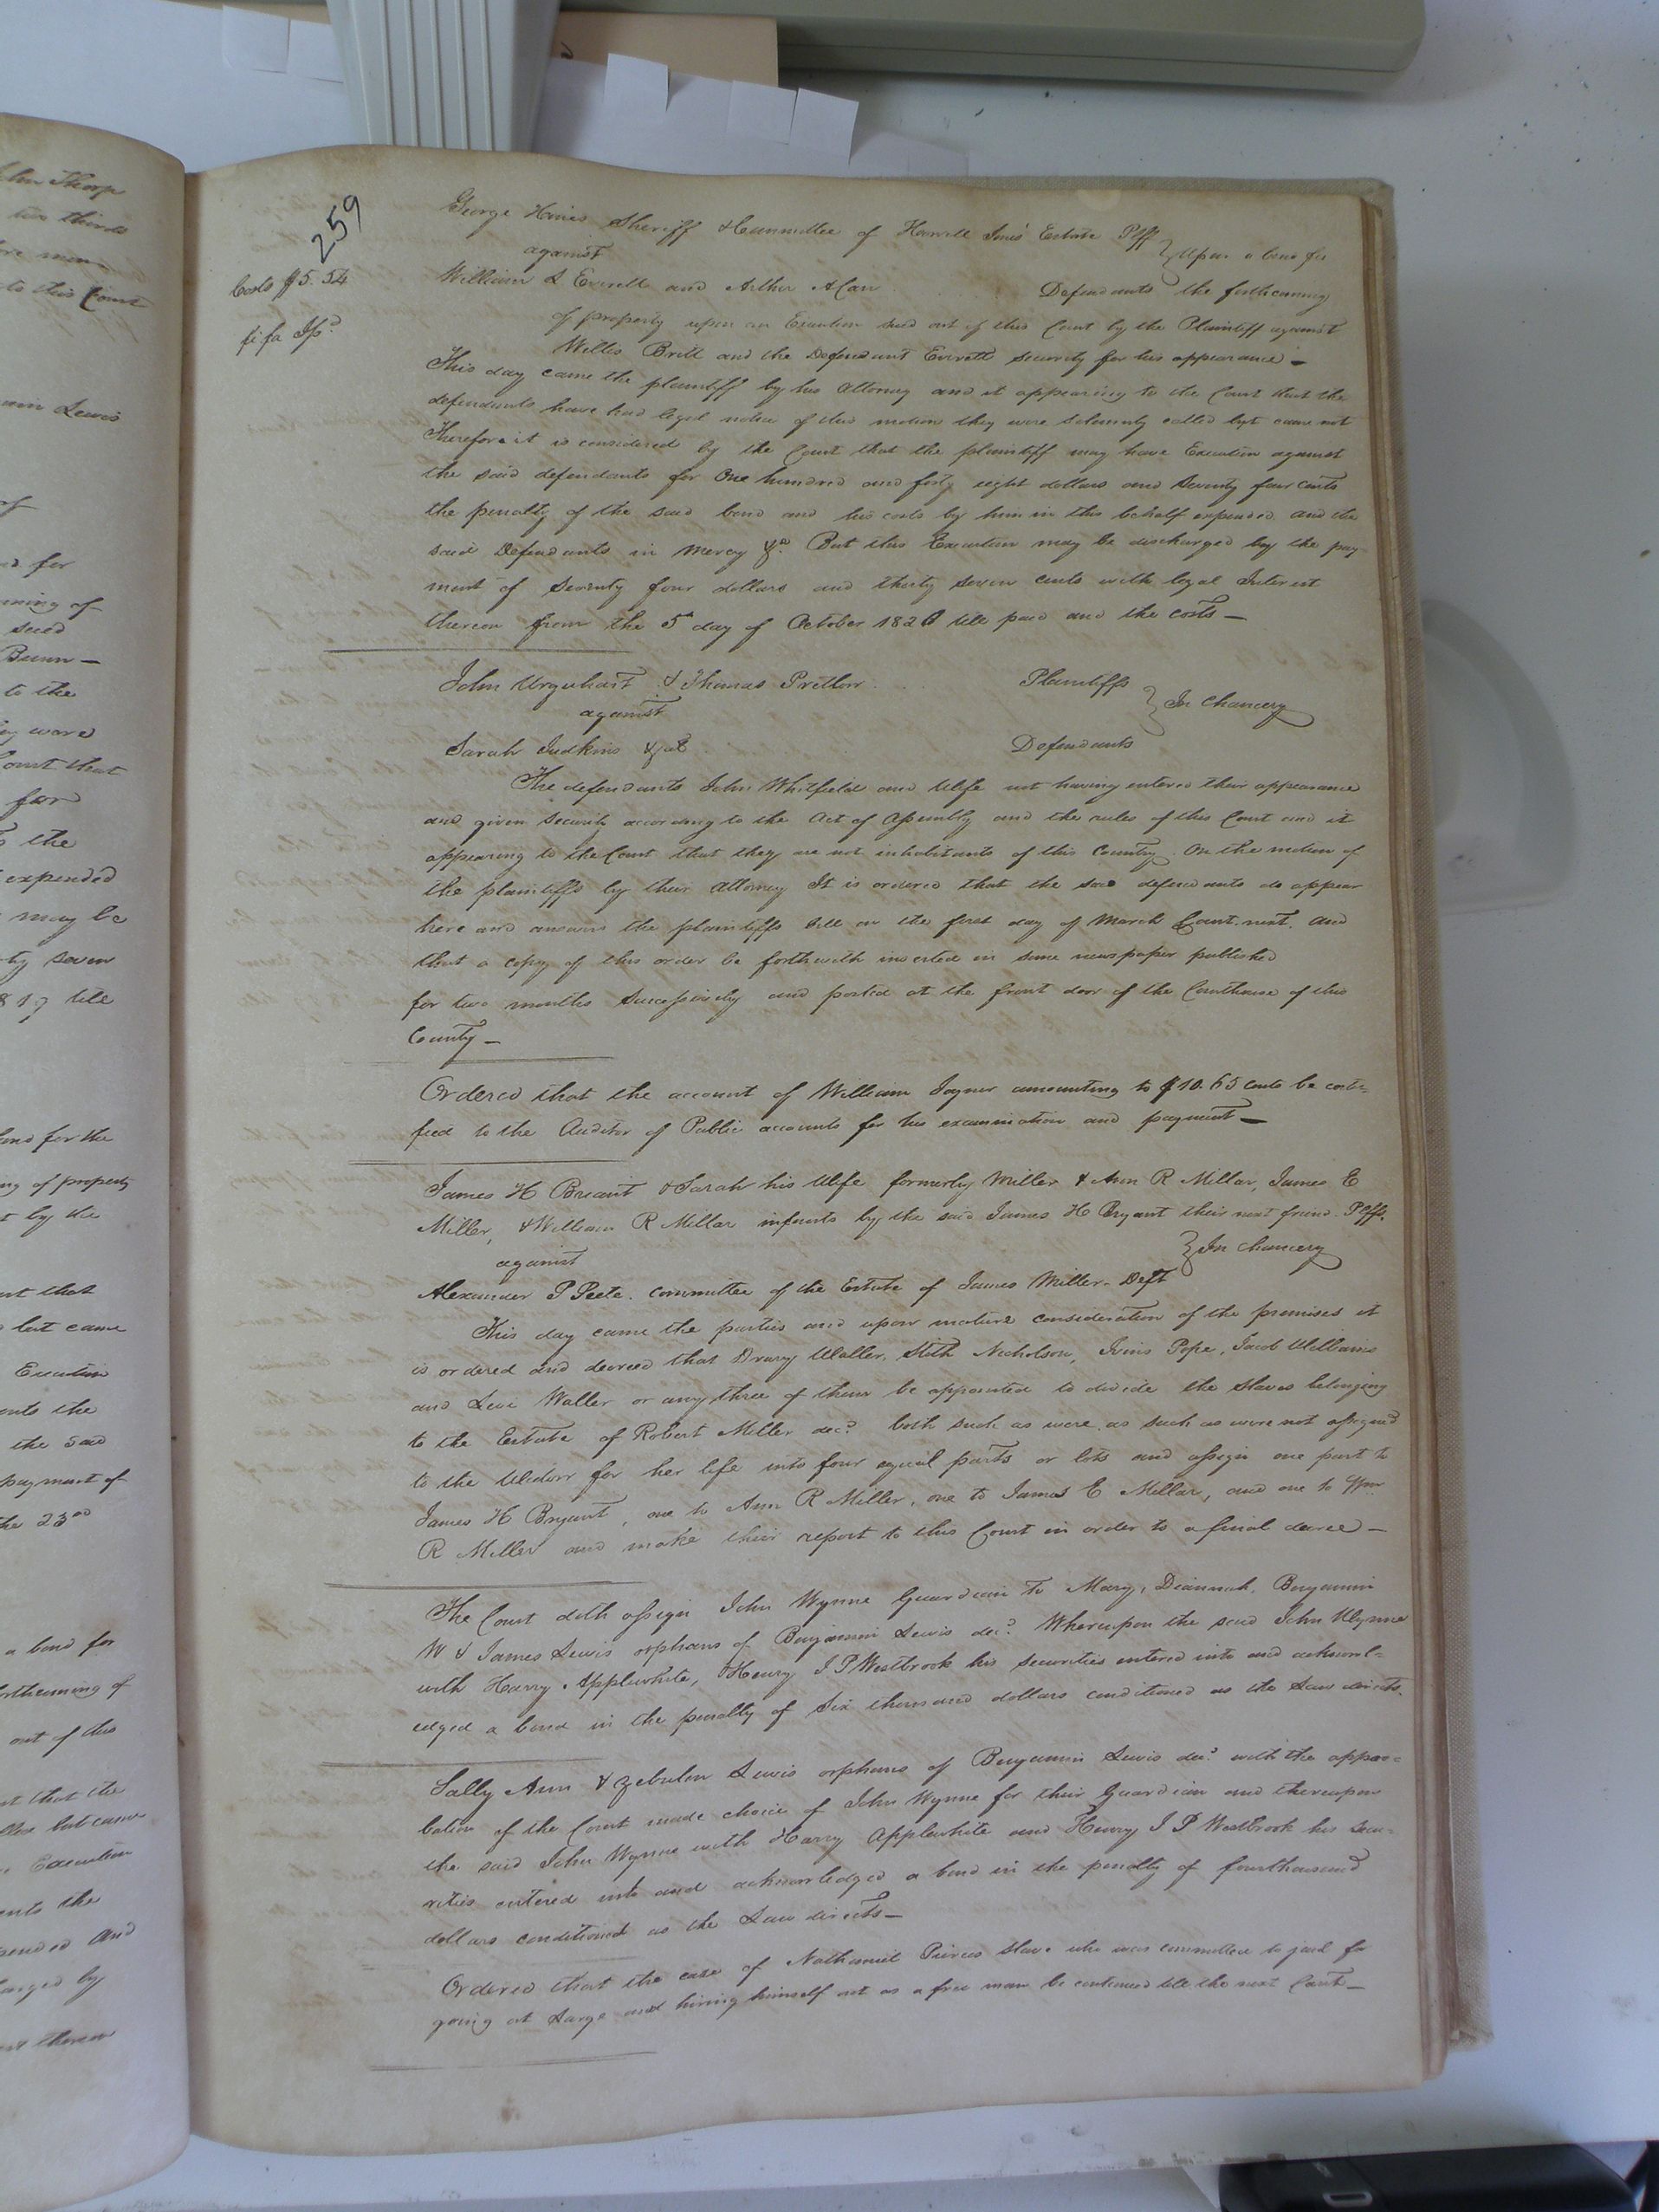 259
Costs $5.54
fi fa Iſsd
George Haines Sheriff & Committee of Howell Estate Plff
against } Upon a bond for
William L Everett and Arthur A Carr Defendants the forthcoming
of property upon an Execution sued out of this Court by the Plaintiff against
Willis Britt and the Defendant Everett security for his appearance —
This day came the plaintiff by his attorney and it appearing to the Court that the
defendants have had legal notice of this motion they were solemnly called but came not
Therefore it is considered by the Court that the plaintiff may have Execution against
the said defendants for One hundred and forty eight dollars and Seventy four cents
the penalty of the said bond and his costs by him in this behalf expended and the
said Defendants in mercy &c. But this Execution may be discharged by the pay-
ment of Seventy four dollars and thirty seven cents with legal Interest
thereon from the 5th day of October till paid and the costs —
John Urquhart & Thomas Pretlow Plaintiffs
against } In Chancery
Sarah Judkins & al Defendants
The defendants John Whitfield and Wife not having entered their appearance
and given security according to the Act of Aſsembly and the rules of this Court and it
appearing to the Court that they are not inhabitants of this Country. On the motion of
the plaintiffs by their attorney It is ordered that the said defendants do appear
here and answer the plaintiffs bill on the first day of March Court next. and
that a copy of this order be forthwith inserted in some newspaper published
for two months Succeſsively and posted at the front door of the Courthouse of this
County —
Ordered that the account of William Joyner amounting to $10.65 cents be certi-
fied to the Auditor of Public accounts for his examination and payment —
James H Breant & Sarah his Wife formerly Miller & Ann R Millar, James E
Miller, & William R Millar infants by the said James H Bryant their next friend. Plffs.
against } In Chancery
Alexander P Peete. Committee of the Estate of James Miller. Deft
This day came the parties and upon mature consideration of the premises it
is ordered and decreed that Drury Waller, Stith Nicholson, Pope, Jacob Williams
and Levi Waller or any three of them be appointed to divide the Slaves belonging
to the Estate of Robert Miller decd. both such as were as such as were not aſsigned
to the Widow for her life into four equal parts or lots and aſsign one part to
James H Bryant, one to Ann R Miller, one to James E Millar, and one to Wm
R Miller and make their report to this Court in order to a final decree —
The Court doth aſsign John Wynne Guardian to Mary, Diannah, Benjamin
W & James Lewis orphans of Benjamin Lewis decd. Whereupon the said John Wynne
with Harry Applewhite, & Henry J P Westbrook his securities entered into and acknowl-
edged a bond in the penalty of Six thousand dollars conditioned as the Law directs.
Sally Ann & Zebulon Lewis orphans of Benjamin Lewis decd. with the appro-
bation of the Court made choice of John Wynne for their Guardian and thereupon
the said John Wynne with Harry Applewhite and Henry J P Westbrook his secu-
rities entered into and acknowledged a bond in the penalty of fourthousand
dollars conditioned as the Law directs —
Ordered that the case of Nathaniel Peirces Slave who was committed to jail for
going at Large and hiring himself out as a free man be continued till the next Court —